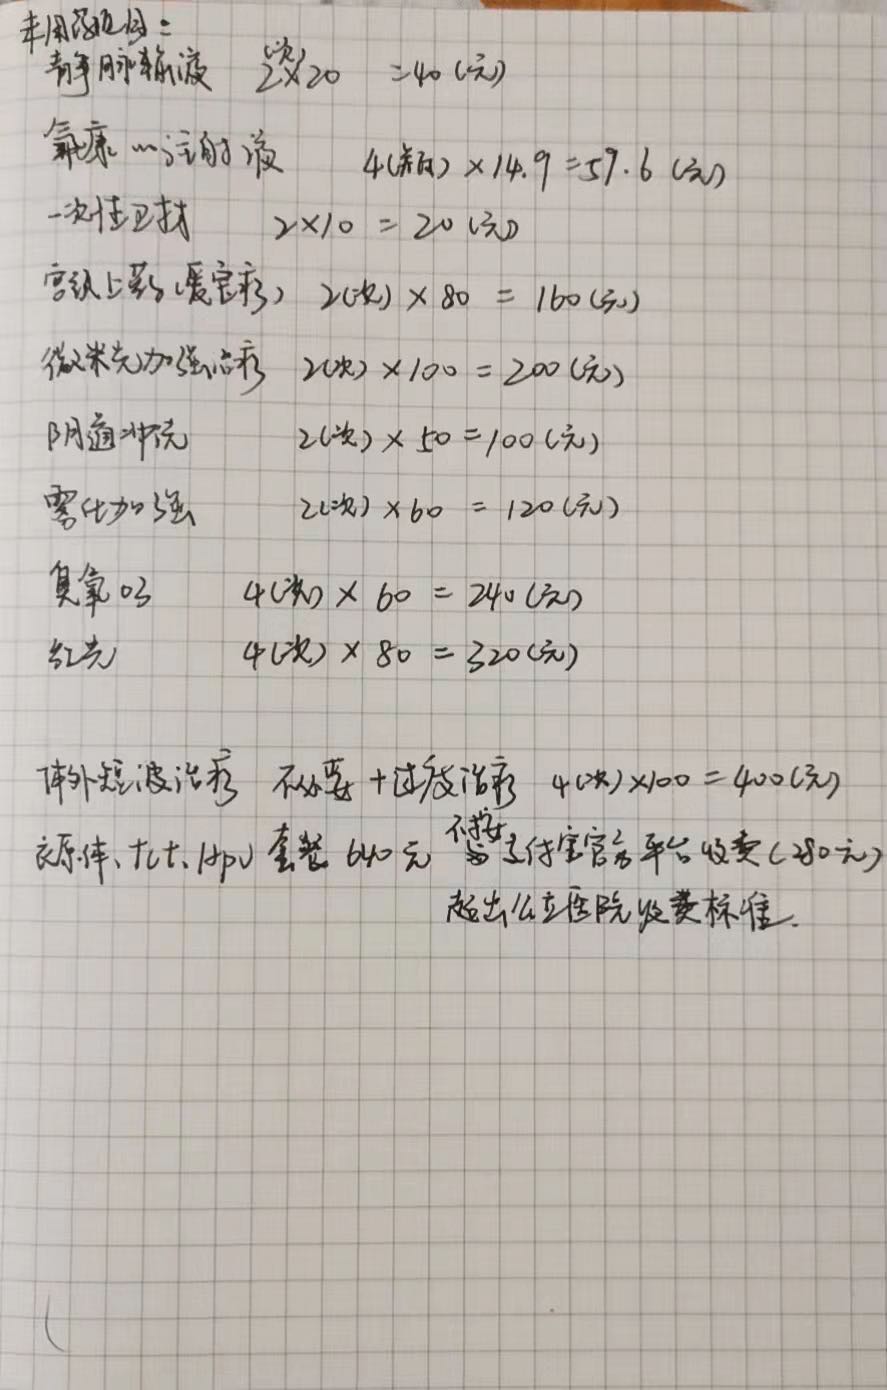 未用药项目:
静脉输液 2(次)×20 =40(元)
氟康…注射液 4(瓶)×14.9=59.6(元)
一次性卫材 2×10=20(元)
宫颈上药(暖宫疗) 2(次)×80=160(元)
微米光加强治疗 2(次)×100=200(元)
阴道冲洗 2(次)×50=100(元)
雾化加强 2(次)×60=120(元)
臭氧03 4(次)×60=240(元)
红光 4(次)×80=320(元)
体外短波治疗 不必要+过度治疗 4(次)×100=400(元)
衣原体、tct、Hpv 套餐640元 不按 支付宝官方平台收费(280元)
超出公立医院收费标准.